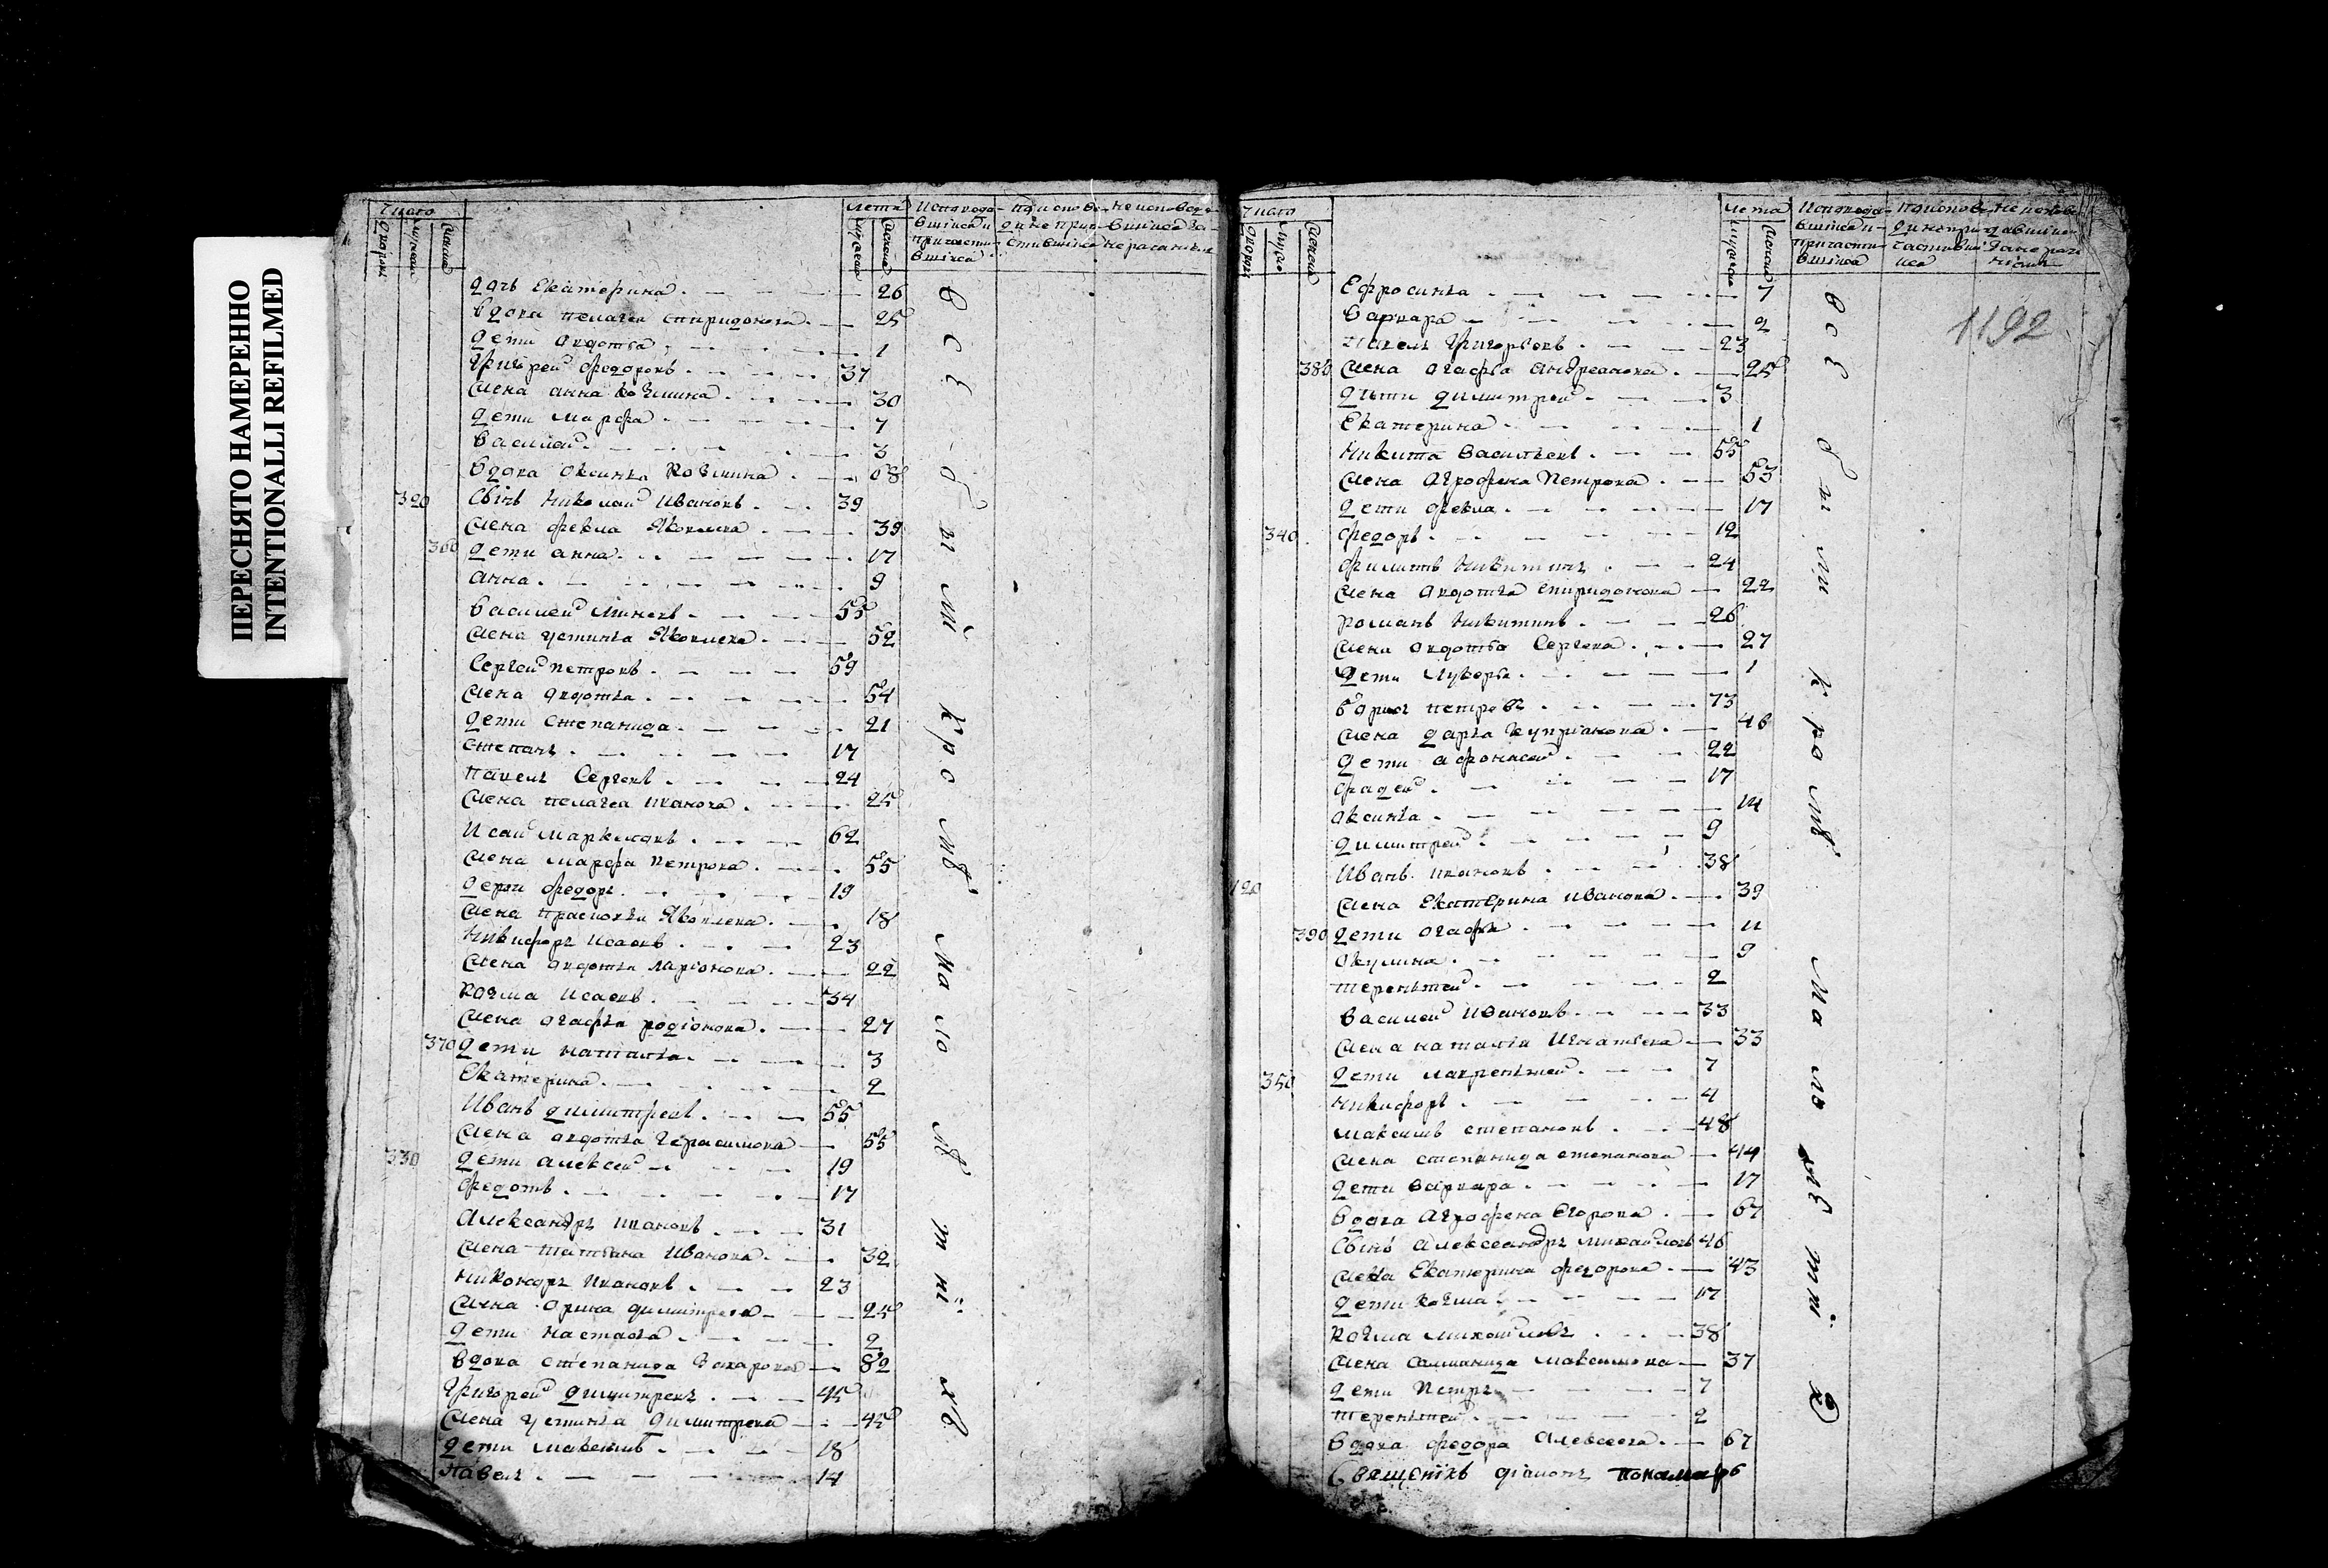 ПЕРЕСНЯТО НАМЕРЕННО
INTENTIONALLI REFILMED
Число
Лета
мужска
женска
дочь Екатерина 26
вдова пелагея спиридонова 25
дети авдотья 1
Григорей федоровъ 37
жена анна козмина 30
дети марфа 7
василей 3
вдова Оксинья Козмина 68
320 Сынъ Николай Ивановъ 39
жена фекла Яковлева 39
360 дети анна 17
анна 9
василей 55
жена устинья Яковлева 52
Сергей петровъ 59
жена авдотья 54
дети степанида 21
степанъ 17
павелъ Сергеевъ 24
жена пелагея иванова 25
Исай 62
жена марфа Петрова 55
дети федоръ 19
жена Прасковья Яковлева 18
Никифоръ Исаевъ 23
жена авдотья ларионова 22
Козма Исаевъ 34
жена агафья родіонова 27
370 дети наталья 3
Екатерина 2
Иванъ димитреевъ 55
жена авдотья Герасимова 55
330 дети алексей 19
федотъ 17
Александръ ивановъ 31
жена татьяна Иванова 32
Никоноръ Ивановъ 23
жена Орина димитрева 25
дети настасья 2
вдова степанида Захарова 82
Григорей димитревъ 45
жена устинья димитрева 45
дети максимъ 18
Павелъ 14
всѣ были кромѣ малолѣтнихъ
Число
Лета
1192
Ефросинья 7
варвара 2
Павелъ Григорьевъ 23
380 жена агафья андреянова 25
дѣти димитрей 3
Екатерина 1
Никита Васильевъ 55
жена Агрофена Петрова 53
дети фекла 17
340 федоръ 12
филипъ Никитинъ 24
жена авдотья спиридонова 22
романъ Никитинъ 26
жена авдотья Сергеева 27
дети лукерья 1
петровъ 73
жена дарья купріянова 46
дети афонасей 22
фадей 17
Оксинья 14
димитрей 9
Иванъ ивановъ 38
120 жена Екатерина Иванова 39
390 дети агафья 11
Окулина 9
терентей 2
василей Ивановъ 33
жена наталія Игнатьева 33
350 дети лаврентей 7
никифоръ 4
максимъ степановъ 48
жена степанида степанова 44
дети варвара 17
вдова Агрофена Егорова 67
Сынъ Александръ михайловъ 46
жена Екатерина федорова 43
дети козма 17
козма михайловъ 38
жена Саламанида максимова 37
дети Петръ 7
терентей 2
вдова федора Алексеева 67
Священикъ пономарь
всѣ были кромѣ малолѣтні